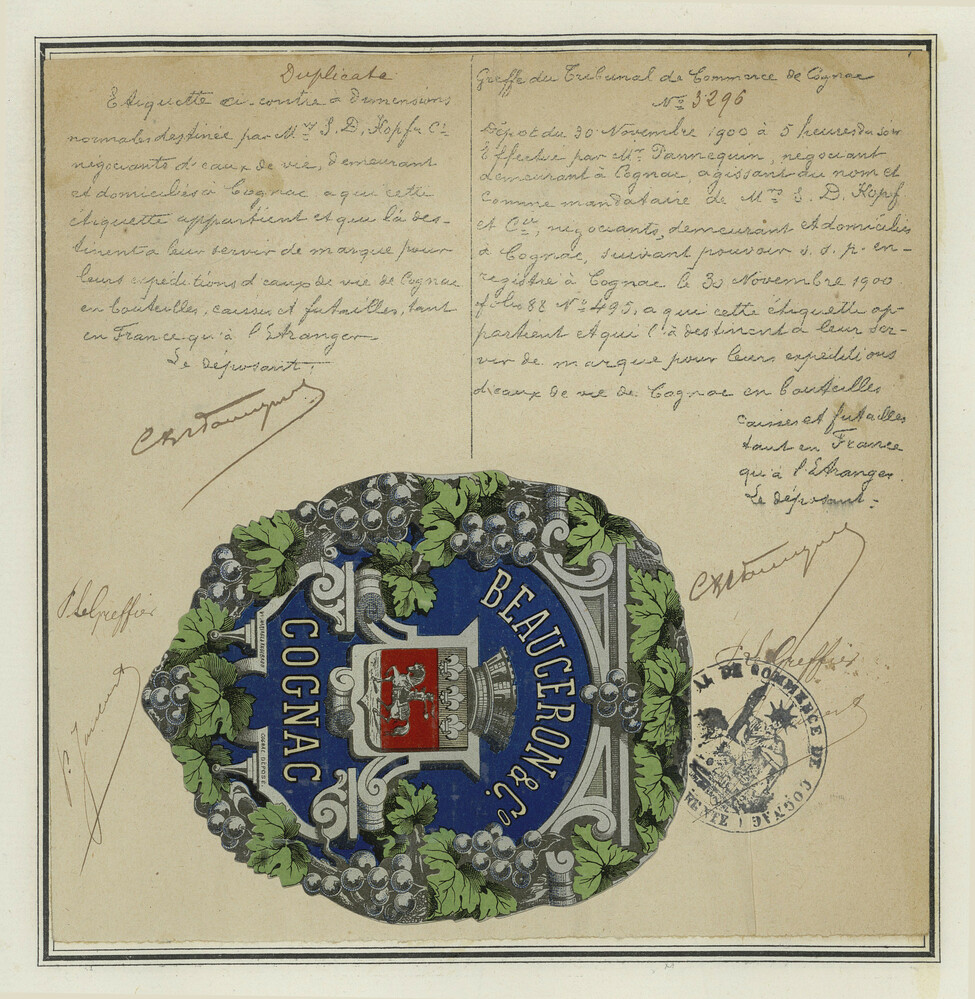 Duplicata
Etiquette ci-contre à dimensions
normales destinée par Mrs S. D. Kopf & Cie
négociants d'eaux de vie, demeurant
et domiciliés à Cognac, a qui cette
étiquette appartient et qui l'à des-
tinent a leur servir de marque pour
leurs expéditions d'eaux de vie de Cognac
en bouteilles, caisses et futailles, tant
en France qu'à l'Etranger
Le déposant.
Greffe du Tribunal de Commerce de Cognac
No 3296
Dépot du 30 Novembre 1900 à 5 heures du soir
Effectué par Mr Tannequin, négociant
demeurant à Cognac, agissant au nom et
comme mandataire de Mrs S. D. Kopf
et Cie, négociants, demeurant et domiciliés
à Cognac, suivant pouvoir s. s. p. en-
registré à Cognac le 30 Novembre 1900
folio 88 No 495, a qui cette étiquette ap-
partient et qui l'à destinent a leur ser-
vir de marque pour leurs expéditions
d'eaux de vie de Cognac en bouteilles
caisses et futailles
tant en France
qu'à l'Etranger.
Le déposant.
P. Le Greffier
P. Le Greffier
BEAUCERON & Co.
COGNAC
MODÈLE DÉPOSÉ
TRIBUNAL DE COMMERCE DE COGNAC